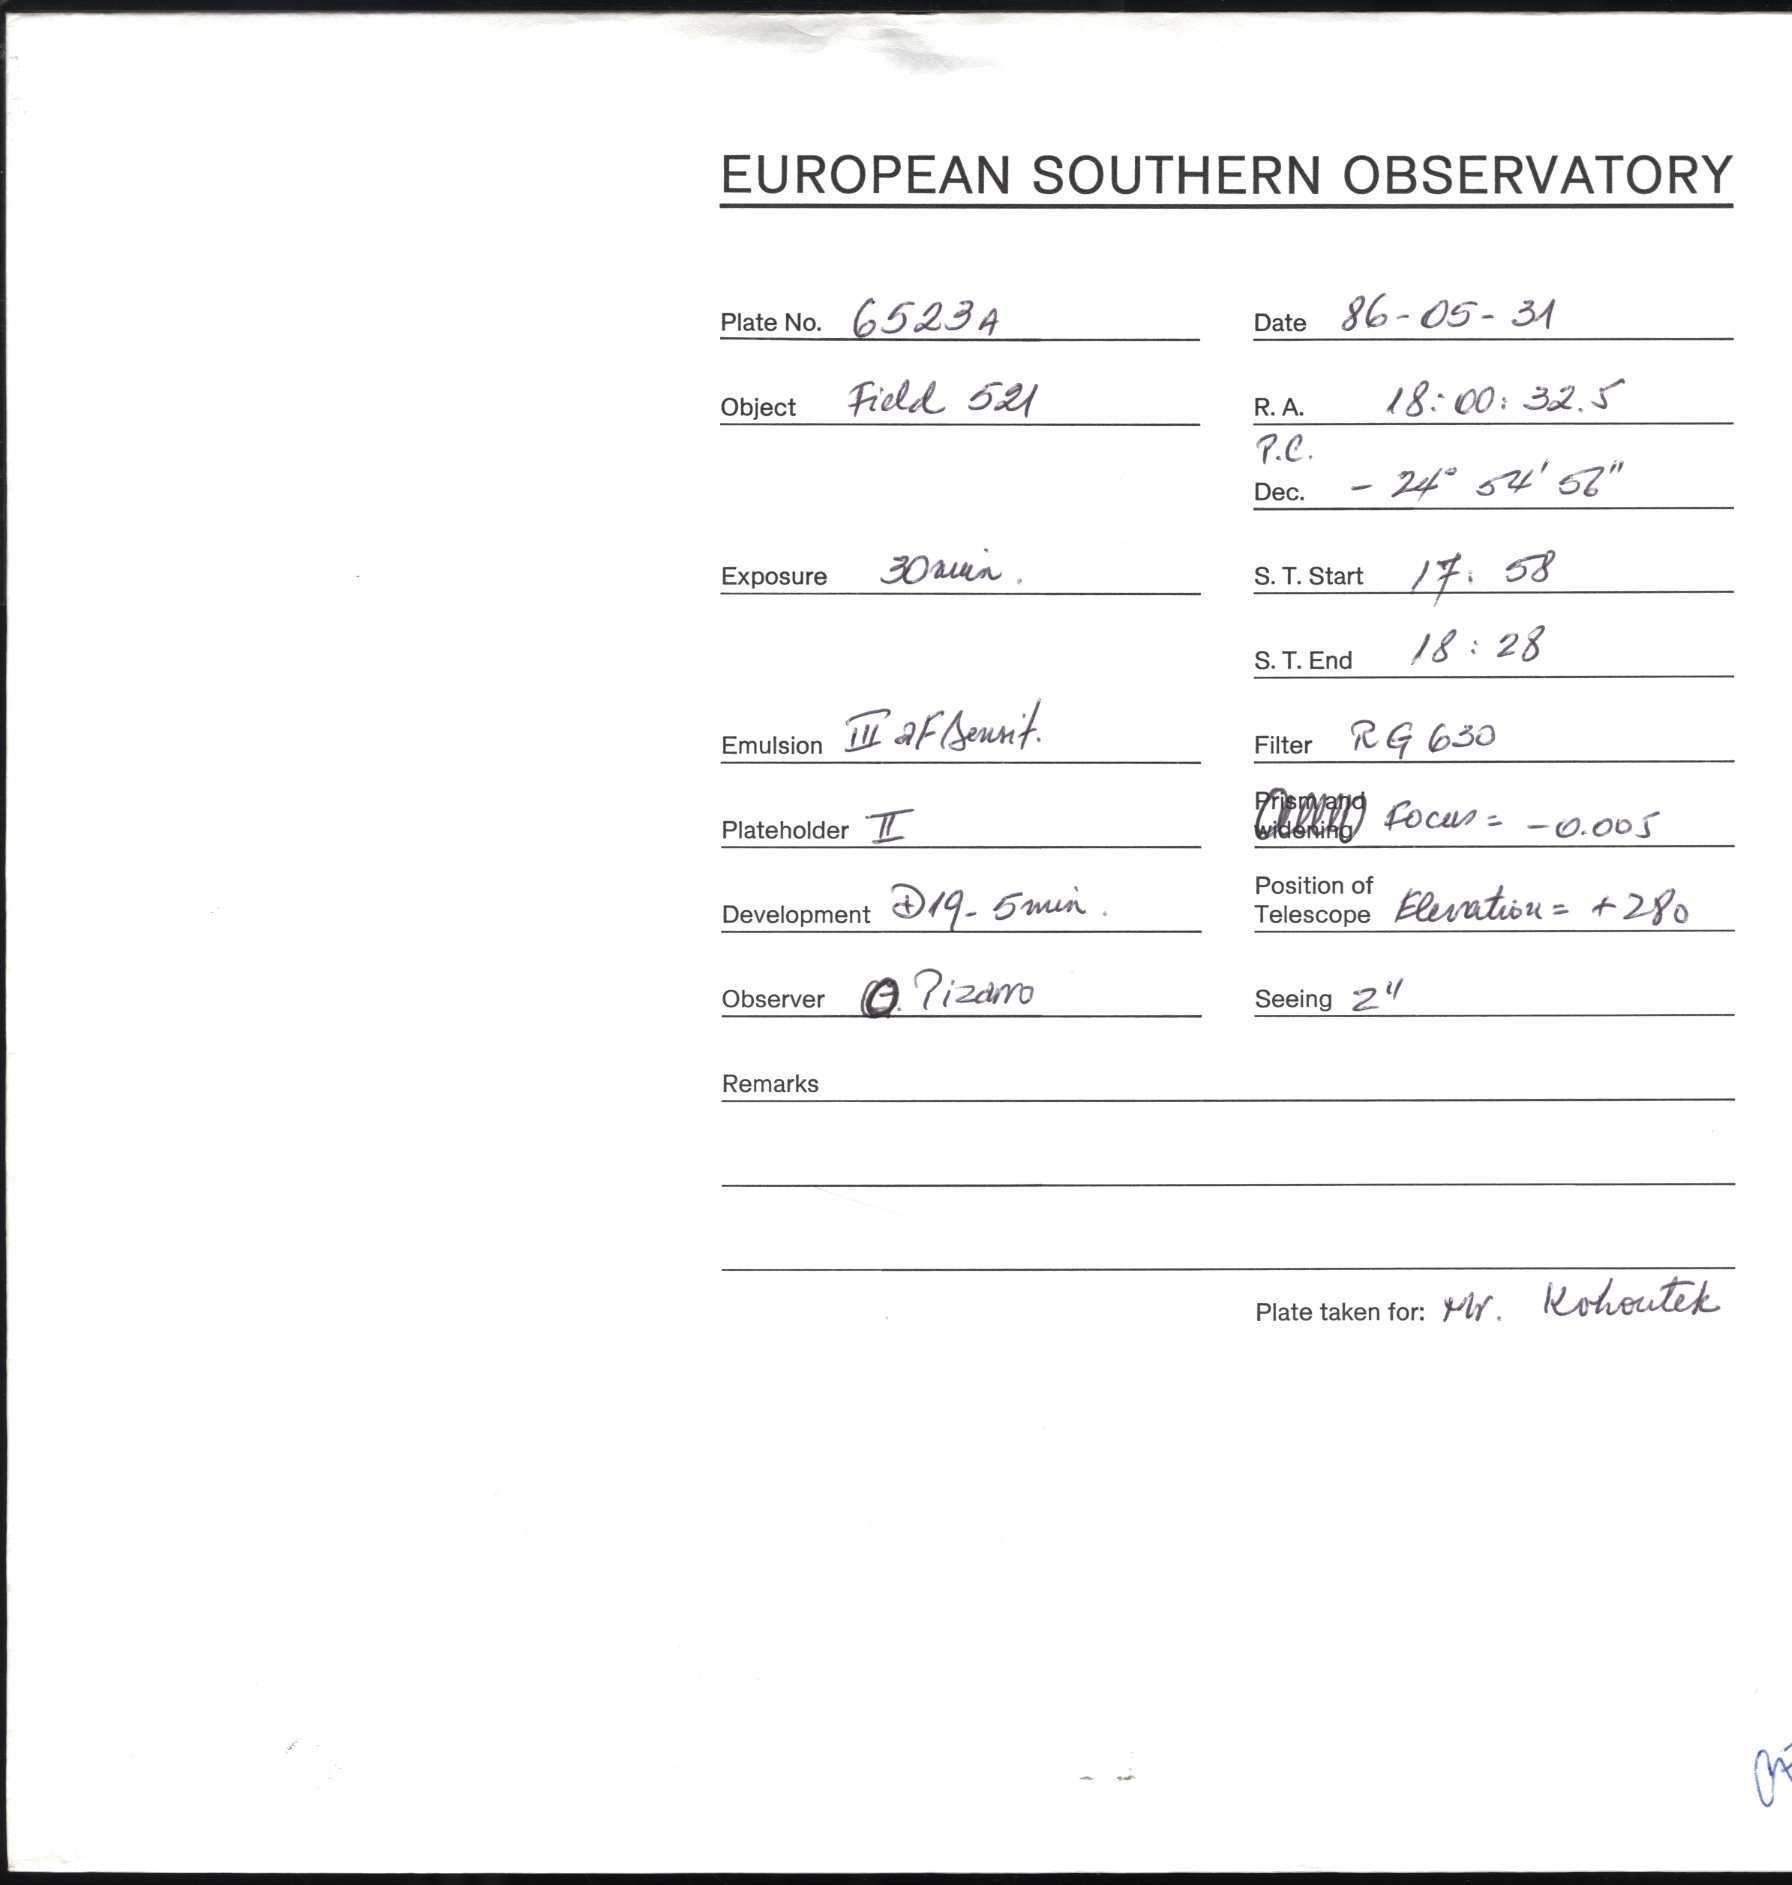 EUROPEAN SOUTHERN OBSERVATORY
Plate No. 6523A
Date 86-05-31
Object Field 521
R. A. 18:00:32.5
P.C.
Dec. - 24° 54' 56"
Exposure 30min.
S. T. Start 17: 58
S. T. End 18:28
Emulsion III aF Sensit.
Filter RG 630
Plateholder II
Prism and widening Focus = -0.005
Development D19- 5min.
Position of Telescope Elevation = +280
Observer Pizarro
Seeing 2"
Remarks
Plate taken for: Mr. Kohoutek